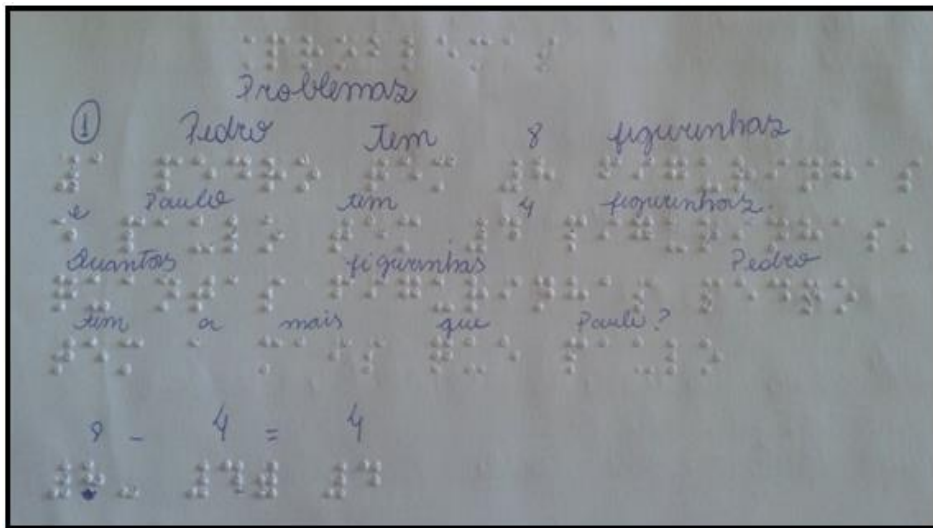 Problemas
① Pedro tem 8 figurinhas
e Paulo tem 4 figurinhas.
Quantas figurinhas Pedro
tem a mais que Paulo?
8 - 4 = 4